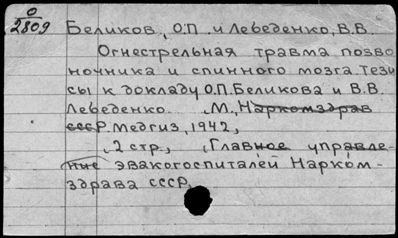 О
2809
Беликов, О.П. и Лебеденко, В.В.
Огнестрельная травма позво
ночника и спинного мозга. Тези
сы к докладу О.П. Беликова и В.В.
Лебеденко. М., Наркомздрав
СССР. Медгиз, 1942,
2 стр., (Главное управле-
ние эвакогоспиталей Нарком-
здрава СССР,